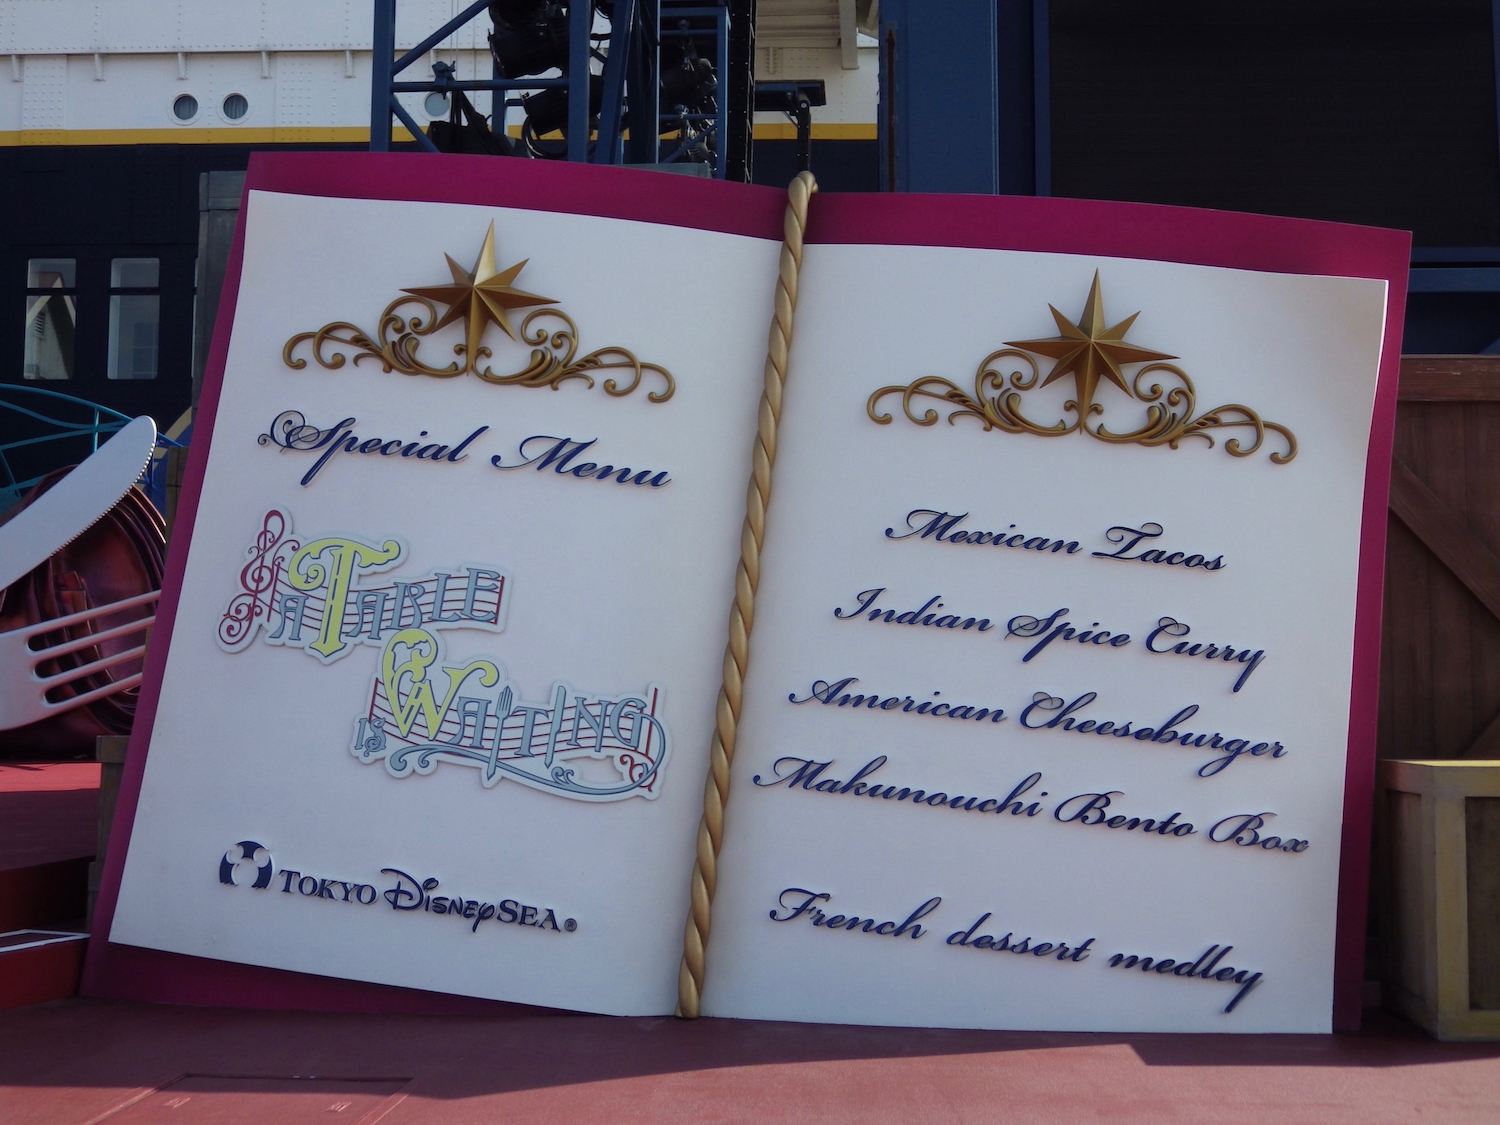 Special Menu
A TABLE
IS WAITING
TOKYO DISNEYSEA®
Mexican Tacos
Indian Spice Curry
American Cheeseburger
Makunouchi Bento Box
French dessert medley